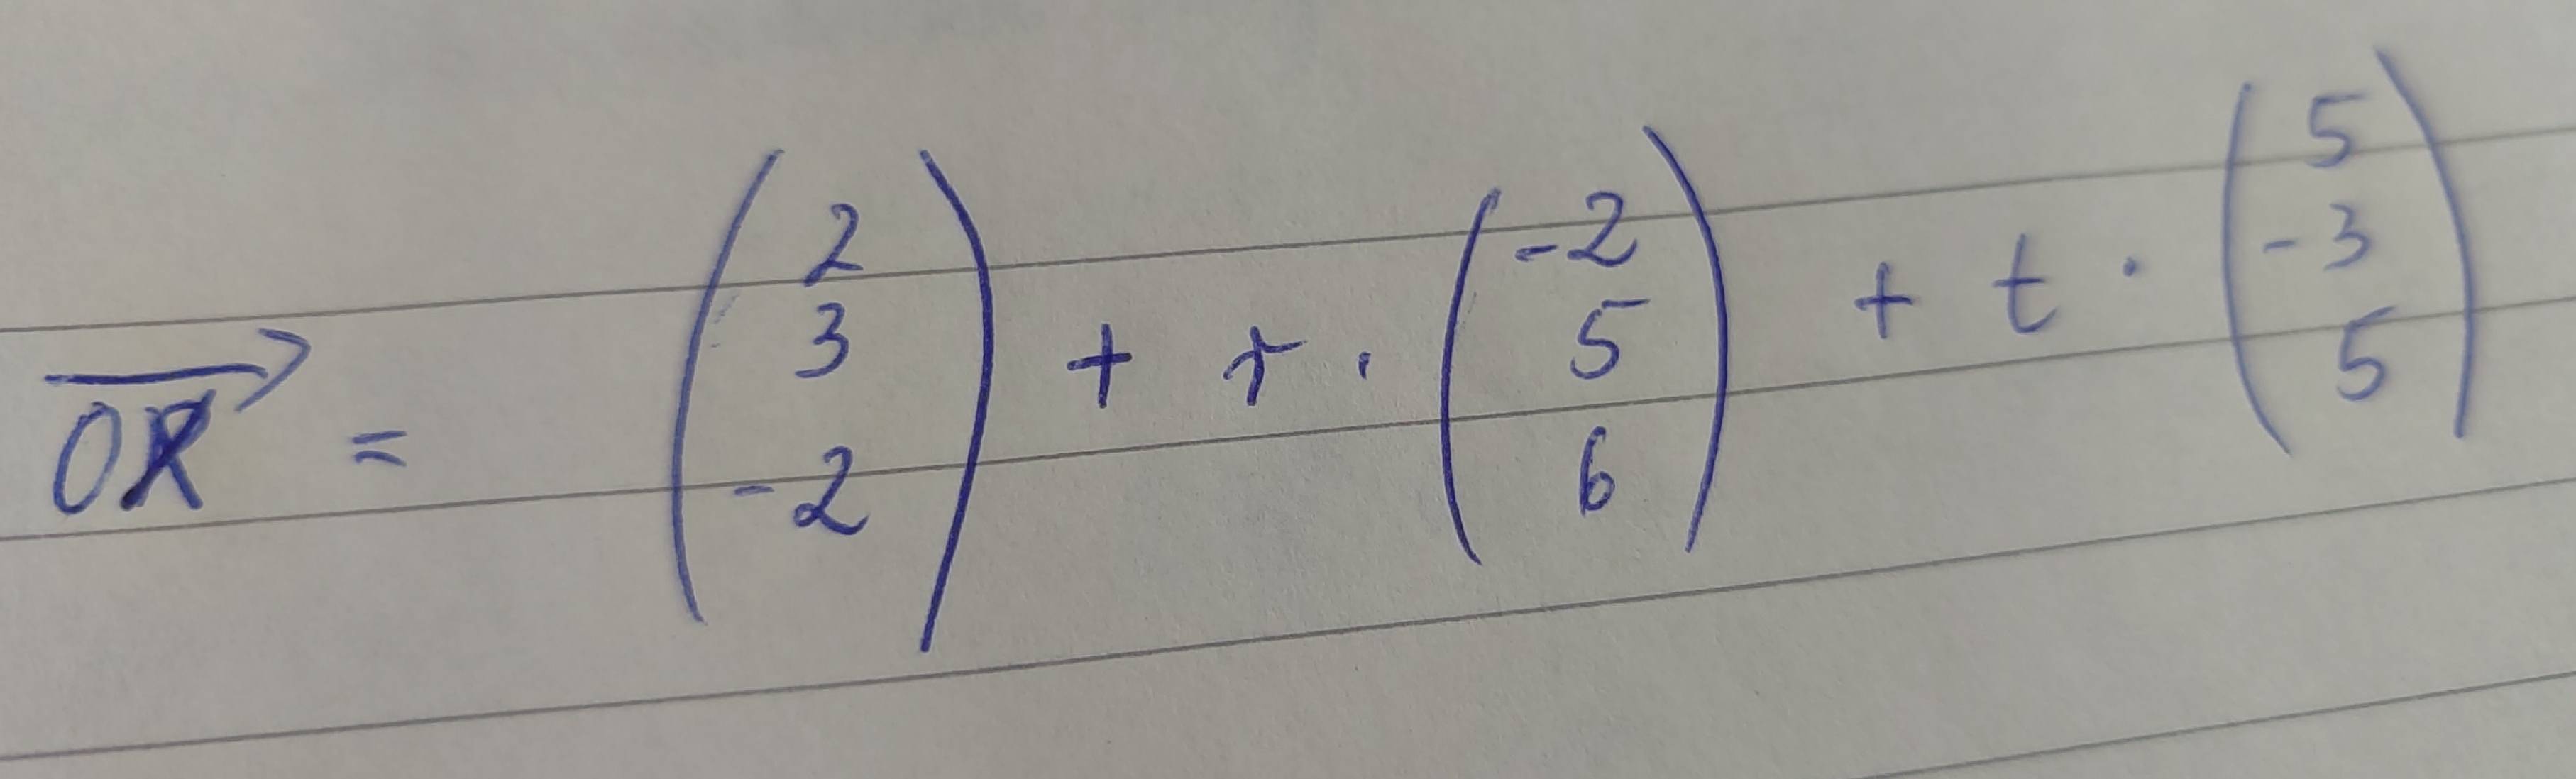 $\overrightarrow{OX} = \begin{pmatrix} 2 \\ 3 \\ -2 \end{pmatrix} + r \cdot \begin{pmatrix} -2 \\ 5 \\ 6 \end{pmatrix} + t \cdot \begin{pmatrix} 5 \\ -3 \\ 5 \end{pmatrix}$